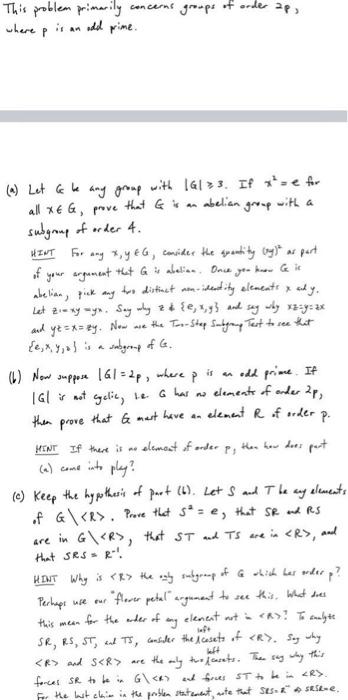 This problem primarily concerns groups of order 2p,
where p is an odd prime.
(a) Let G be any group with |G| ≥ 3. If x² = e for
all x ∈ G, prove that G is an abelian group with a
subgroup of order 4.
HINT For any x, y ∈ G, consider the quantity (xy)² as part
of your argument that G is abelian. Once you know G is
abelian, pick any two distinct non-identity elements x and y.
Let z = xy = yx. Say why z ∉ {e, x, y} and say why xz = y = zx
and yz = x = zy. Now use the Two-Step Subgroup Test to see that
{e, x, y, z} is a subgroup of G.
(b) Now suppose |G| = 2p, where p is an odd prime. If
|G| is not cyclic, i.e. G has no elements of order 2p,
then prove that G must have an element R of order p.
HINT If there is no element of order p, then how does part
(a) come into play?
(c) Keep the hypothesis of part (b). Let S and T be any elements
of G\<R>. Prove that S² = e, that SR and RS
are in G\<R>, that ST and TS are in <R>, and
that SRS = R⁻¹.
HINT Why is <R> the only subgroup of G which has order p?
Perhaps use our "flower petal" argument to see this. What does
this mean for the order of any element not in <R>? To analyze
SR, RS, ST, and TS, consider the left cosets of <R>. Say why
<R> and S<R> are the only two left cosets. Then say why this
forces SR to be in G\<R> and forces ST to be in <R>.
For the last claim in the problem statement, note that SRS = R⁻¹ ⇔ SRSR = e.